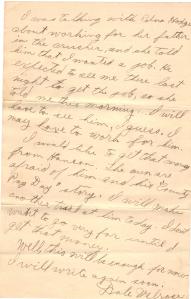 I was talking with Edna Hodge
about working for her father
in the crusher, and she told
him that I wanted a job. He
expected to see me there last
night to get the job, so she
told me this morning. I will
have to see him, I guess. I
may have to work for him.
I would like to get that money
from Hanson. The men are
afraid of him and his
Day" story. I will
another at him today. I don't
want to go very far until I
get that money.
Well this will be enough for now
I will write again soon.
Dale